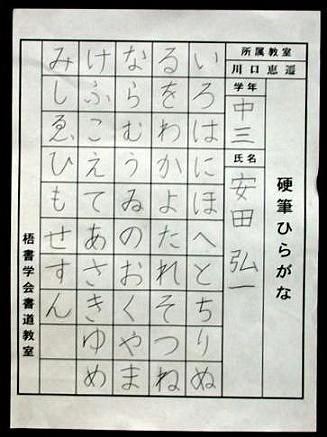 硬筆ひらがな
所属教室
川口
学年
中三
氏名
安田 弘一
いろはにほへとちりぬ
るをわかよたれそつね
ならむうゐのおくやま
けふこえてあさきゆめ
みしゑひもせすん
梧書学会書道教室